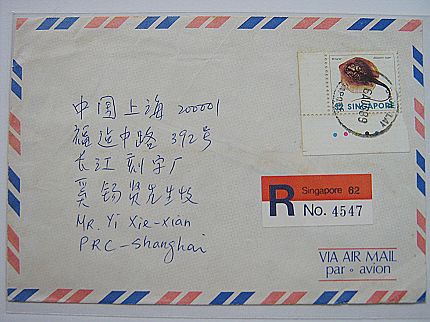 SINGAPORE
中国上海 200001
福建中路 392号
长江刻字厂
奚锡贤先生收
Mr. Yi Xie-xian
PRC-Shanghai
R
Singapore 62
No. 4547
VIA AIR MAIL
par avion